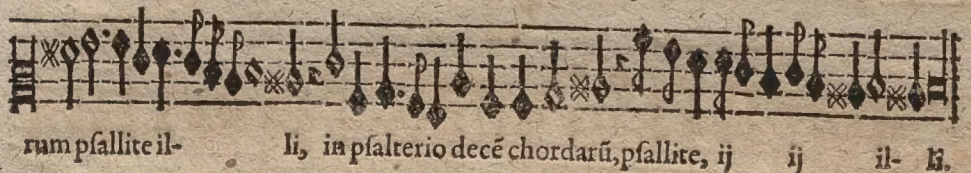 rum pſallite il- li, in pſalterio decē chordarū, pſallite, ij ij il- li.